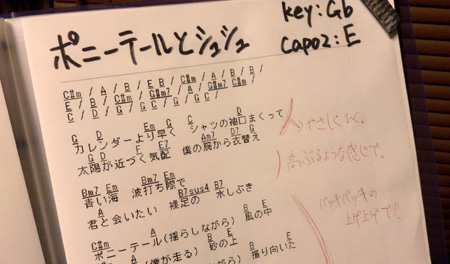 ポニーテールとシュシュ
key:Gb
capo2:E
C#m / A / B / E B / C#m / A / B / B /
E / B / C#m / G#m / A / G#m7 / A / B /
C / D / G / G / C / G / G C /
G D Em G C D
カレンダーより早く シャツの袖口まくって
G D E E7 Am7 D7 G
太陽が近づく気配 僕の腕から衣替え
Bm7 Em Bm7 Em
青い海 波打ち際で
A B7sus4 B7
君と会いたい 裸足の 水しぶき
C#m A B E
ポニーテール(揺らしながら) 風の中
C#m A B E
(僕が走る) 砂の上
B E
ながら) 振り向いた
やさしくひく。
高ぶるような感じで。
バッキバッキの
上げ上げで!!